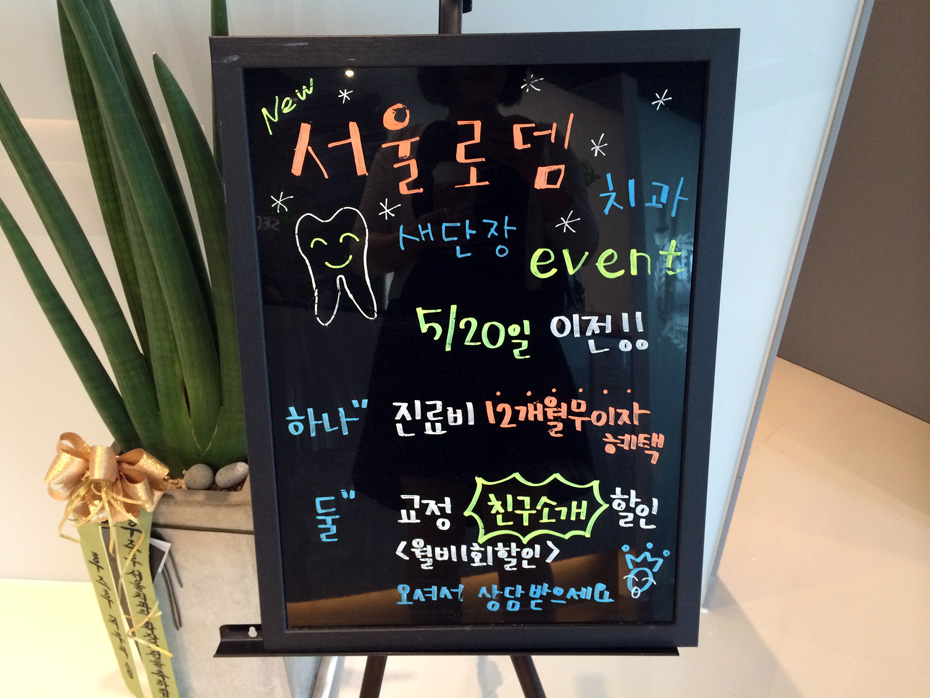 New
서울로뎀
치과
새단장
event
5/20일 이전!!
하나" 진료비 12개월무이자
혜택
둘" 교정 친구소개 할인
<월비1회할인>
오셔서 상담받으세요